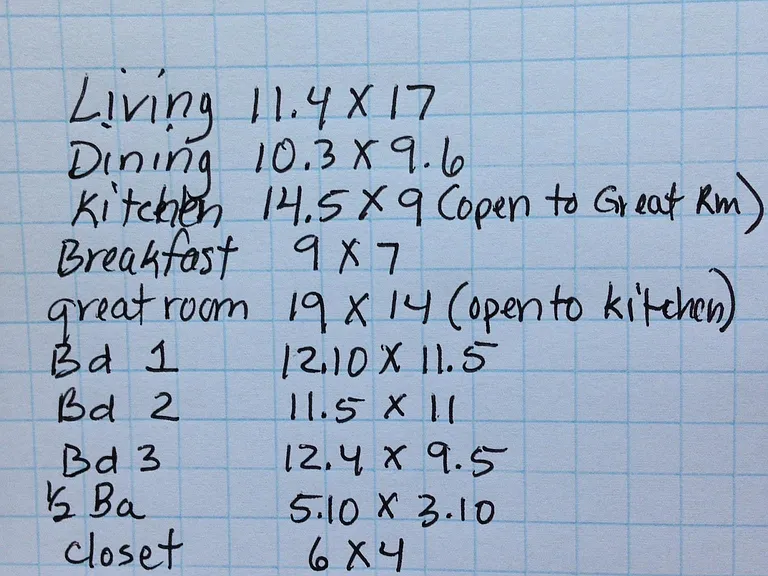 Living 11.4 X 17
Dining 10.3 X 9.6
Kitchen 14.5 X 9 (open to Great Rm)
Breakfast 9 X 7
great room 19 X 14 (open to kitchen)
Bd 1 12.10 X 11.5
Bd 2 11.5 X 11
Bd 3 12.4 X 9.5
½ Ba 5.10 X 3.10
closet 6 X 4